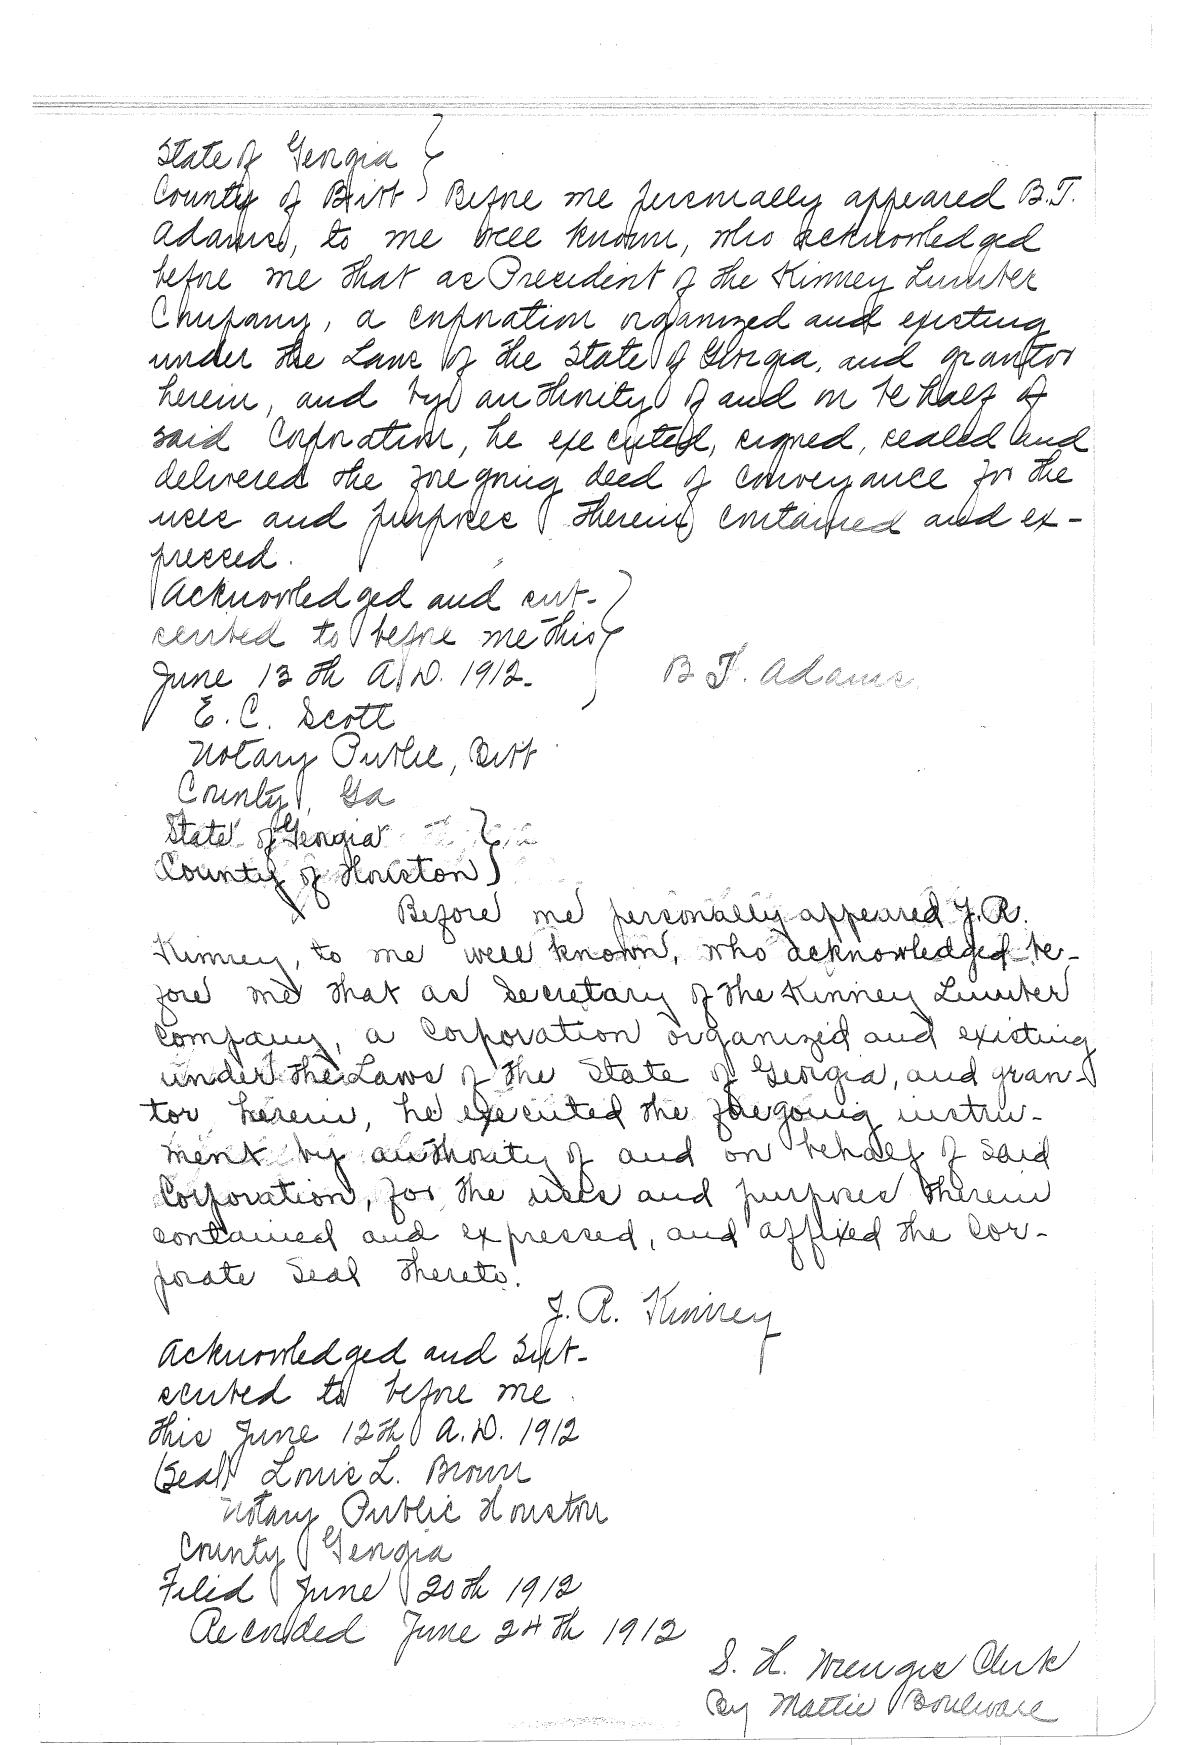 State of Georgia }
County of Bibb } Before me personally appeared B.T.
Adams, to me well known, who acknowledged
before me that as President of the Kinney Lumber
Company, a corporation organized and existing
under the Laws of the State of Georgia, and grantor
herein, and by authority of and on behalf of
said Corporation, he executed, signed, sealed and
delivered the foregoing deed of conveyance for the
uses and purposes therein contained and ex-
pressed.
Acknowledged and sub- }
scribed to before me this }
June 13th A.D. 1912. } B.T. Adams
E. C. Scott
Notary Public, Bibb
County, Ga
State of Georgia }
County of Houston }
Before me personally appeared J.R.
Kinney, to me well known, who acknowledged be-
fore me that as Secretary of the Kinney Lumber
Company, a Corporation organized and existing
under the Laws of the State of Georgia, and gran-
tor herein, he executed the foregoing instru-
ment by authority of and on behalf of said
Corporation, for the uses and purposes therein
contained and expressed, and affixed the Cor-
porate Seal thereto.
J. R. Kinney
Acknowledged and Sub-
scribed to before me
this June 12th A.D. 1912
(Seal) Louis L. Brown
Notary Public Houston
County Georgia
Filed June 20th 1912
Recorded June 24th 1912
S. H. Clerk
By Mattie Bouleware